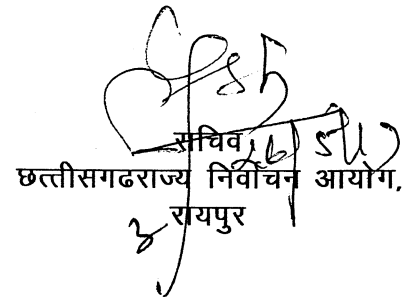 सचिव
छत्तीसगढराज्य निर्वाचन आयोग,
रायपुर